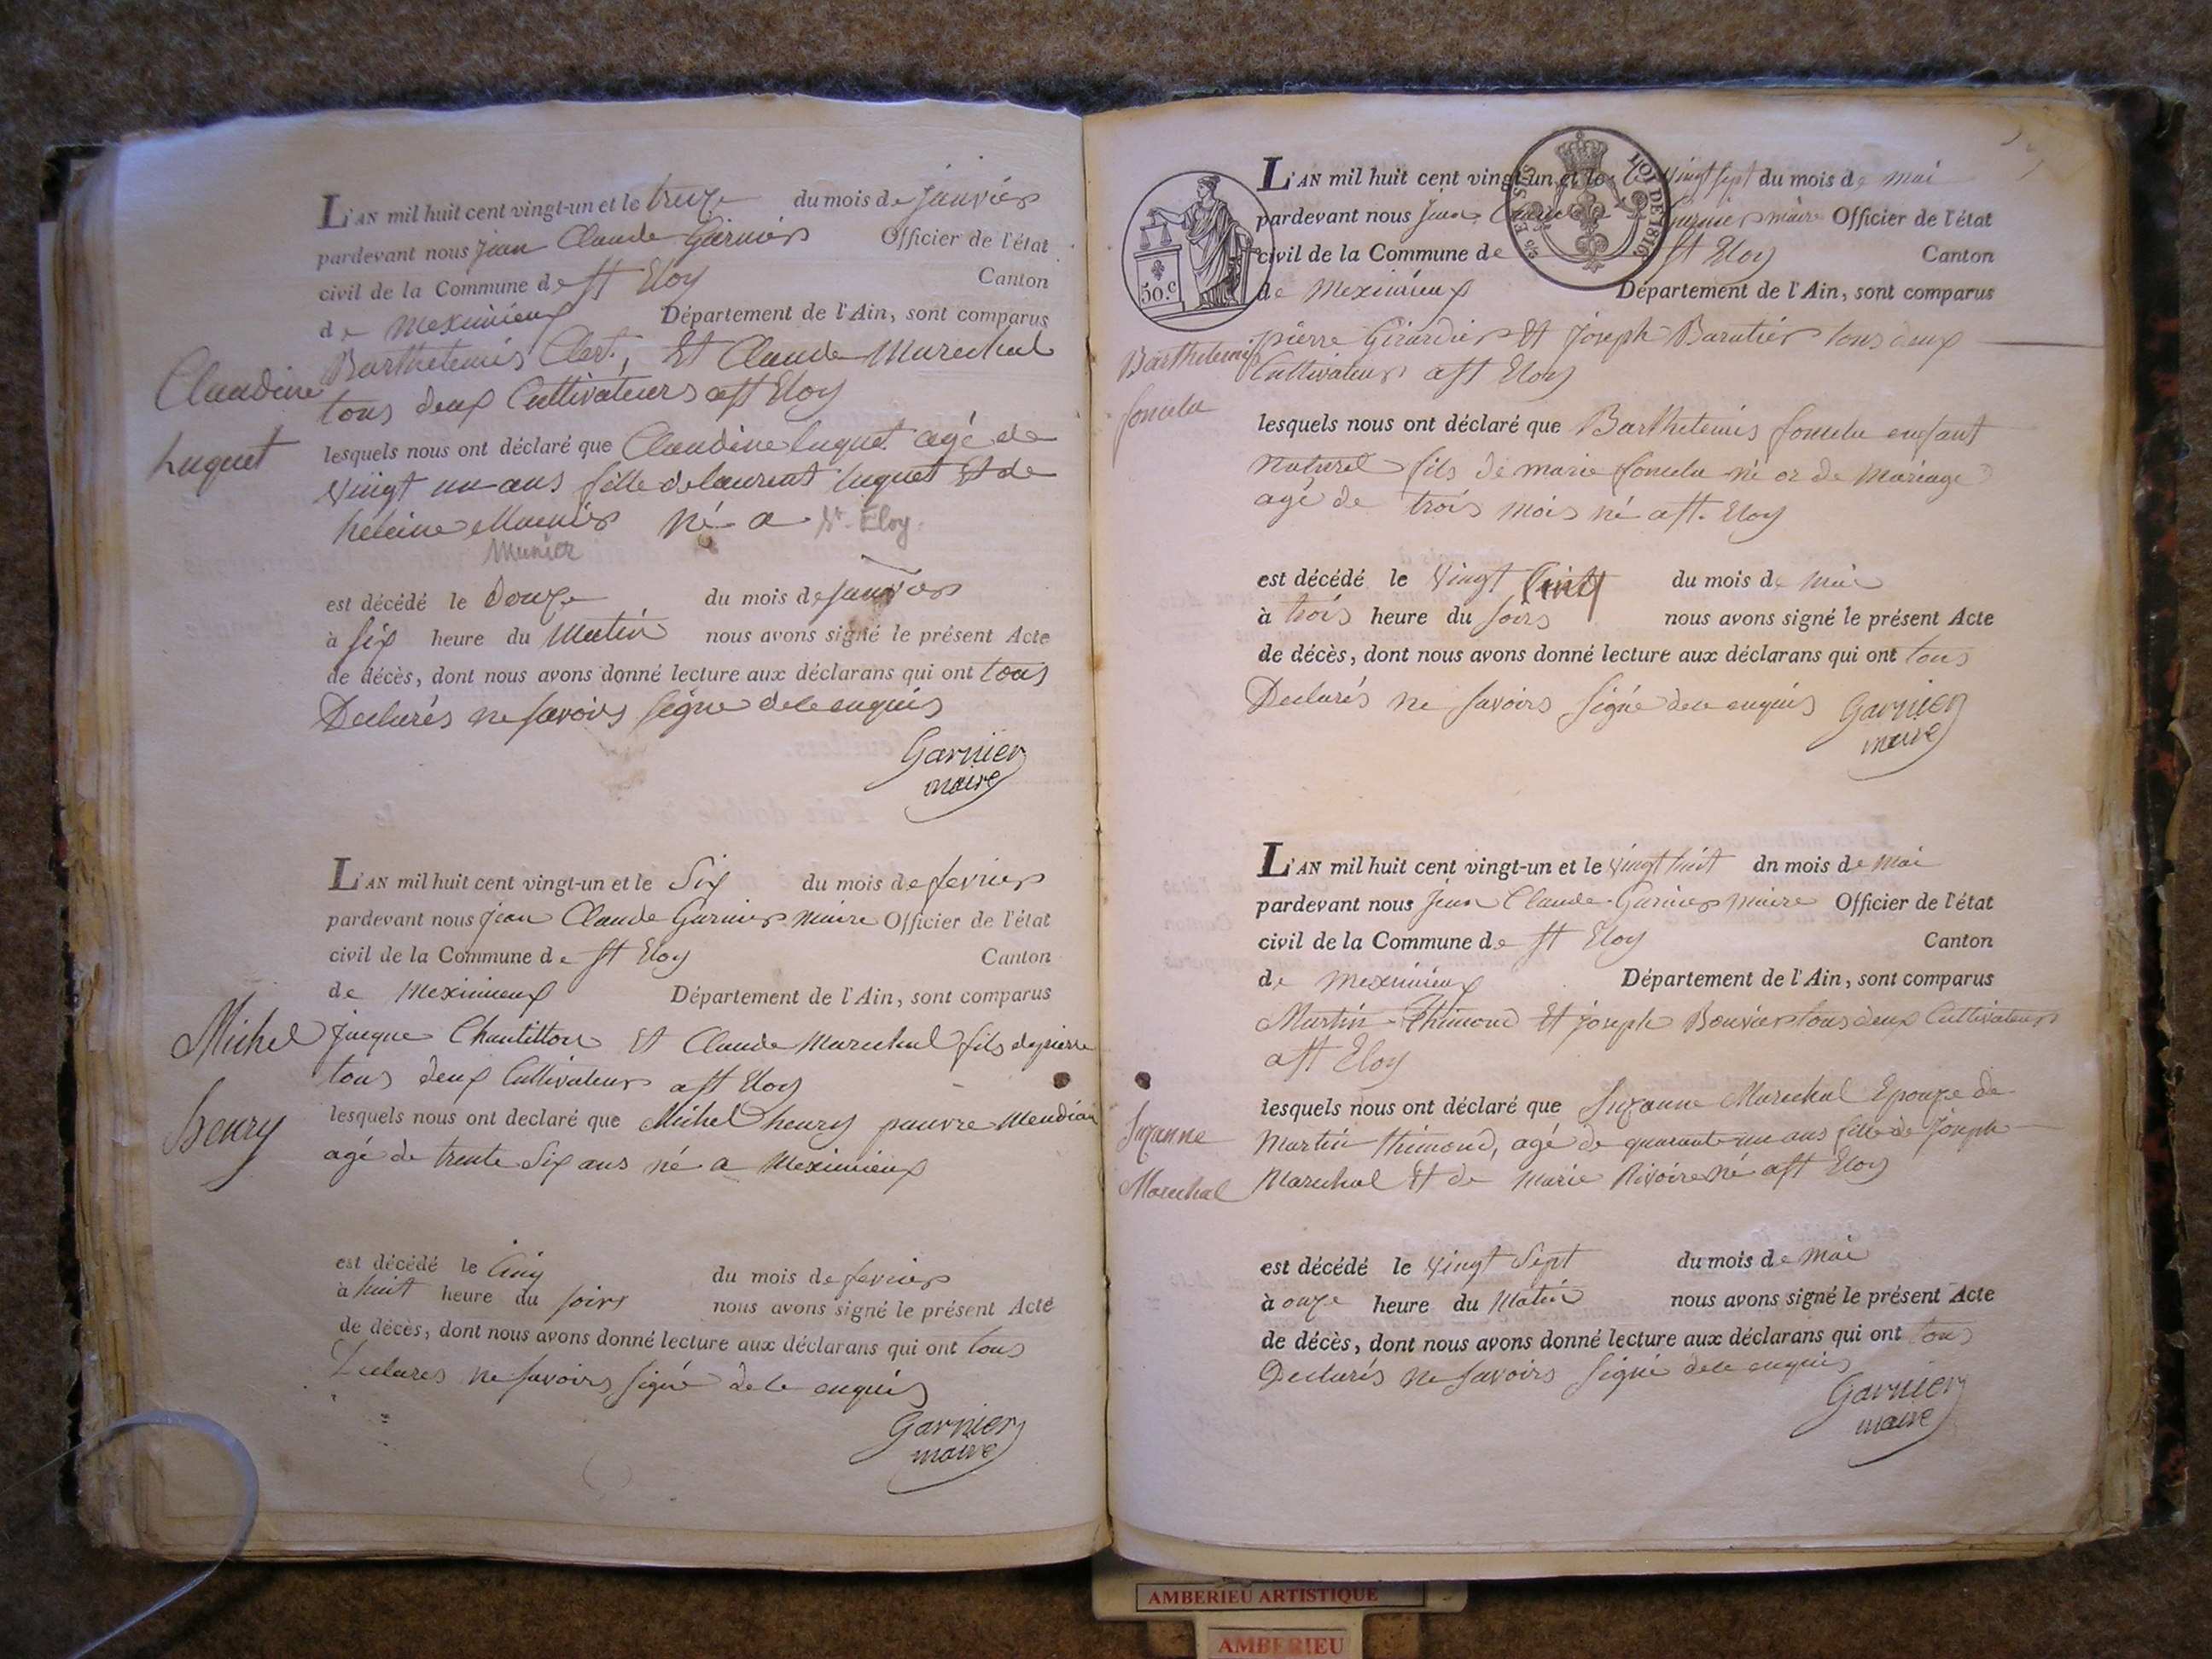 L'AN mil huit cent vingt-un et le treize du mois de janvier
pardevant nous jean Claude Garnier Officier de l'état
civil de la Commune de st Eloy Canton
de Meximieux Département de l'Ain, sont comparus
Barthelemis Clert, Et Claude Marechal
tous deux Cultivateurs a st Eloy
Claudine
Luquet
lesquels nous ont déclaré que Claudine luquet agé de
vingt un ans fille de laurent luquet Et de
heleine né a St Eloy
Munier
est décédé le Douze du mois de janvier
à six heure du Matin nous avons signé le présent Acte
de décès, dont nous avons donné lecture aux déclarans qui ont tous
Declarés ne savoirs signé de ce enquis
Garnier
maire
L'AN mil huit cent vingt-un et le Six du mois de fevrier
pardevant nous jean Claude Garnier maire Officier de l'état
civil de la Commune de st Eloy Canton
de Meximieux Département de l'Ain, sont comparus
Michel
henry
jacque Chantillon Et Claude Marechal fils de pierre
tous deux Cultivateurs a st Eloy
lesquels nous ont declaré que Michel henry pauvre Mendian
agé de trente Six ans né a Meximieux
est décédé le Cinq du mois de fevrier
à huit heure du soirs nous avons signé le présent Acte
de décès, dont nous avons donné lecture aux déclarans qui ont tous
Declares ne savoirs signé de ce enquis
Garnier
maire
50.c
LOI DE 1816
L'AN mil huit cent vingt-un et le vingt sept du mois de mai
pardevant nous jean Garnier maire Officier de l'état
civil de la Commune de st Eloy Canton
de Meximieux Département de l'Ain, sont comparus
pierre Girardier Et joseph Baratier tous deux
Cultivateurs a st Eloy
Barthelemis
lesquels nous ont déclaré que Barthelemis enfant
naturel fils de marie né or de Mariage
agé de trois mois né a st. Eloy
est décédé le vingt Cinq du mois de mai
à trois heure du soirs nous avons signé le présent Acte
de décès, dont nous avons donné lecture aux déclarans qui ont tous
Declarés ne savoirs signé de ce enquis
Garnier
maire
L'AN mil huit cent vingt-un et le vingt huit dn mois de mai
pardevant nous jean Claude Garnier maire Officier de l'état
civil de la Commune de st Eloy Canton
de meximieux Département de l'Ain, sont comparus
Martin Thimond Et joseph Bouvier tous deux Cultivateurs
a st Eloy
Suzanne
Marechal
lesquels nous ont déclaré que Suzanne Marechal Epouze de
Martin thimond, agé de quarante un ans fille de joseph
Marechal Et de Marie Rivoire né a st Eloy
est décédé le vingt Sept du mois de mai
à onze heure du Matin nous avons signé le présent Acte
de décès, dont nous avons donné lecture aux déclarans qui ont tous
Declarés ne savoirs signé de ce enquis
Garnier
maire
AMBERIEU ARTISTIQUE
AMBERIEU